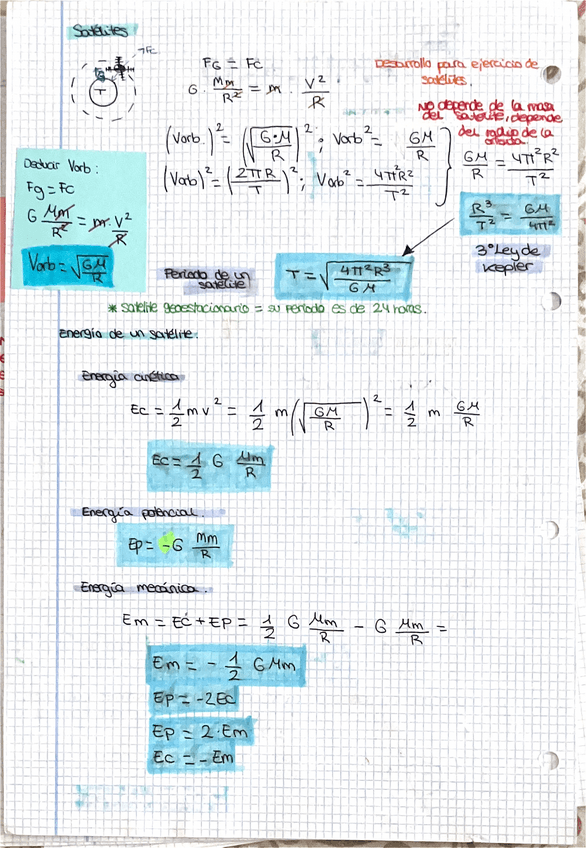 Satélites
Fc
T
FG = Fc
G · Mm/R² = m · V²/R
Desarrollo para ejercicio de
satélites.
No depende de la masa
del satélite, depende
del radio de la
órbita.
(Vorb.)² = (√(G·M/R))² ; Vorb² = GM/R
(Vorb)² = (2πR/T)² ; Vorb² = 4π²R²/T²
GM/R = 4π²R²/T²
R³/T² = GM/4π²
3º Ley de
Kepler
Deducir Vorb :
Fg = Fc
G Mm/R² = m · V²/R
Vorb = √(GM/R)
Periodo de un
satélite
T = √(4π²R³/GM)
* satélite geoestacionario = su periodo es de 24 horas.
Energía de un satélite.
Energía cinética
Ec = 1/2 mv² = 1/2 m (√(GM/R))² = 1/2 m GM/R
Ec = 1/2 G Mm/R
Energía potencial.
Ep = -G Mm/R
Energía mecánica.
Em = Ec + EP = 1/2 G Mm/R - G Mm/R =
Em = - 1/2 GMm
EP = -2Ec
EP = 2·Em
Ec = -Em